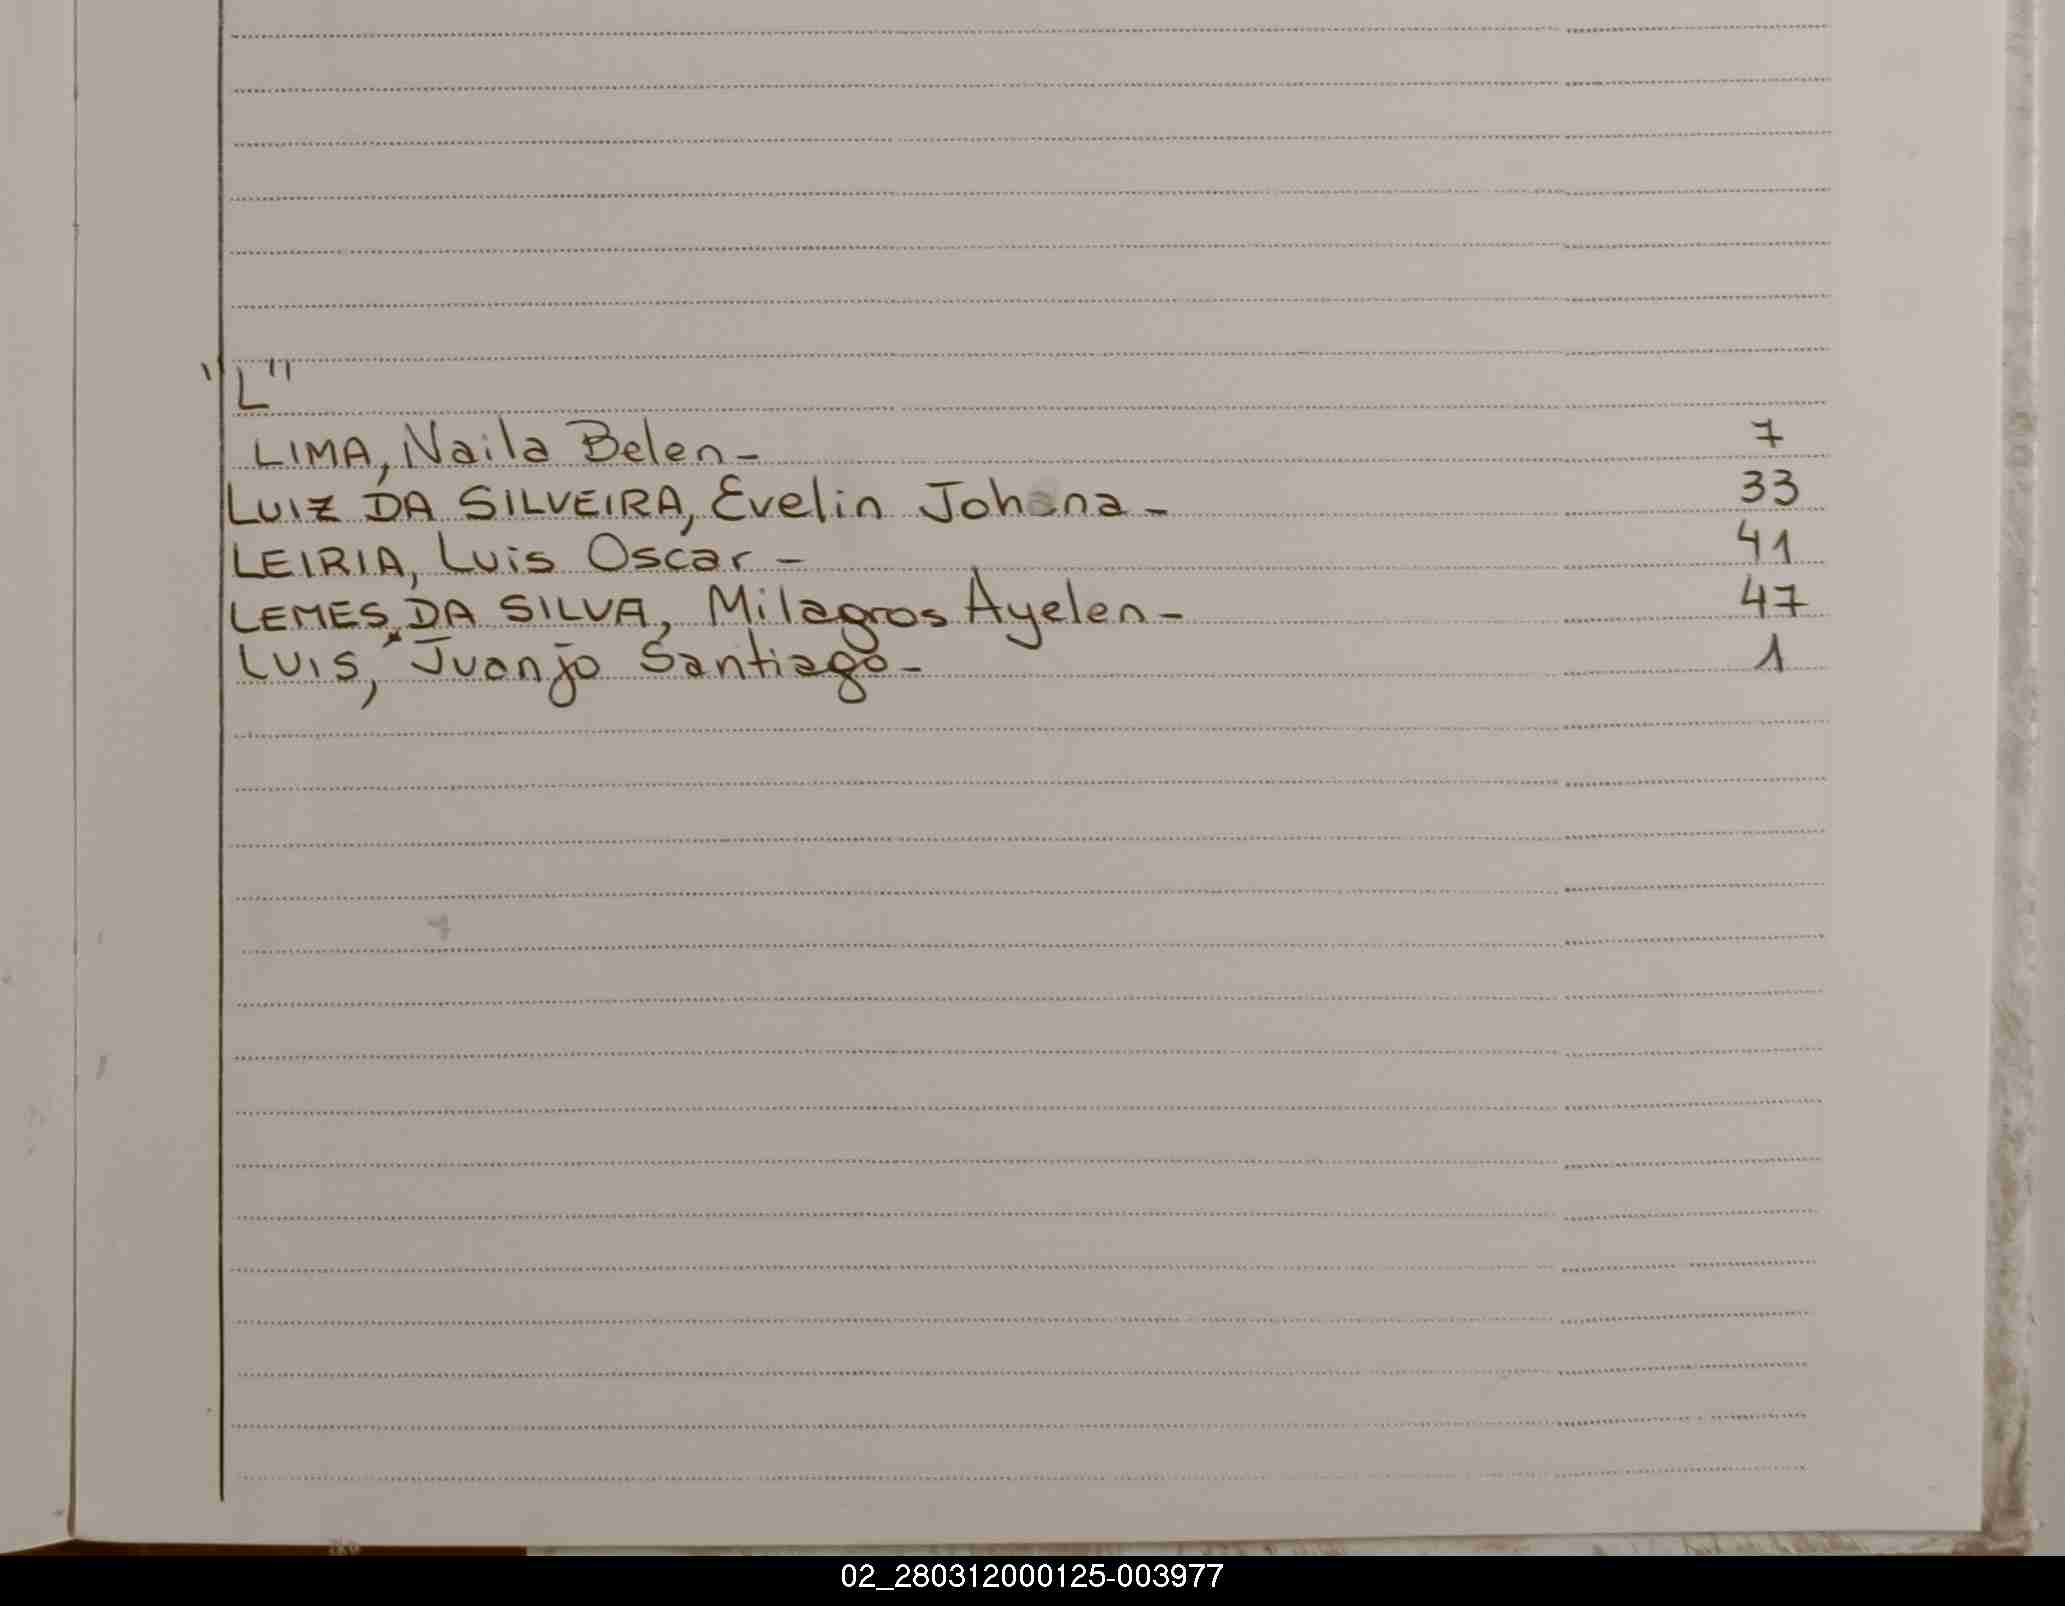 "L"
LIMA, Naila Belen - 7
LUIZ DA SILVEIRA, Evelin Johana - 33
LEIRIA, Luis Oscar - 41
LEMES DA SILVA, Milagros Ayelen - 47
LUIS, Juanjo Santiago - 1
02_280312000125-003977